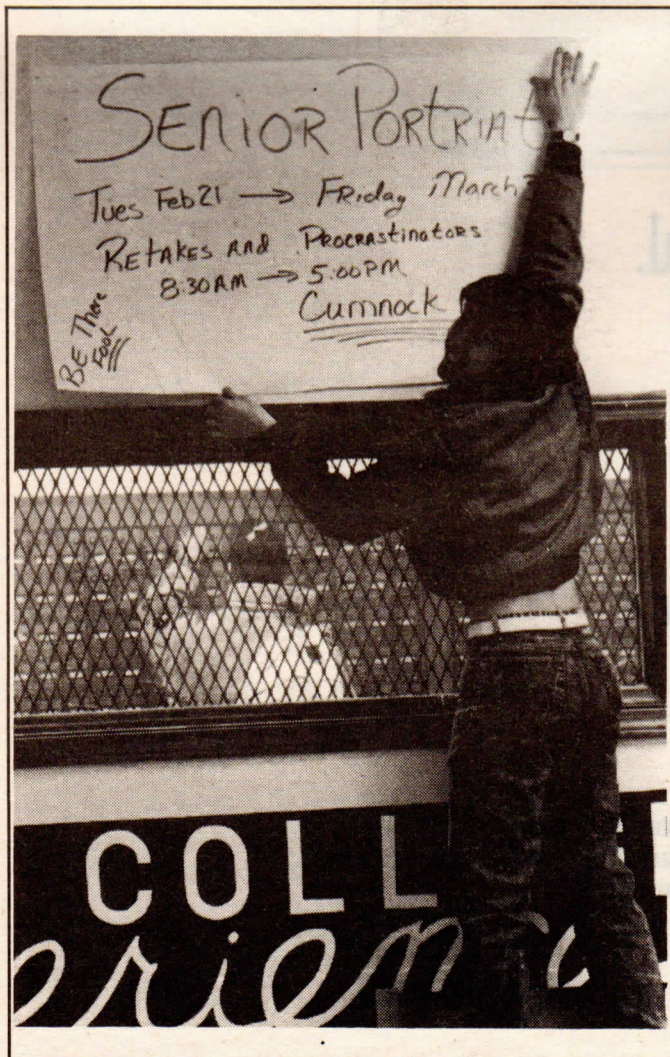 SENIOR PORTRIAT
Tues Feb 21 → FRiday March
RETAKES AND PROCRASTINATORS
8:30AM → 5:00PM
Cumnock
BE There
Fool
COLL
erien